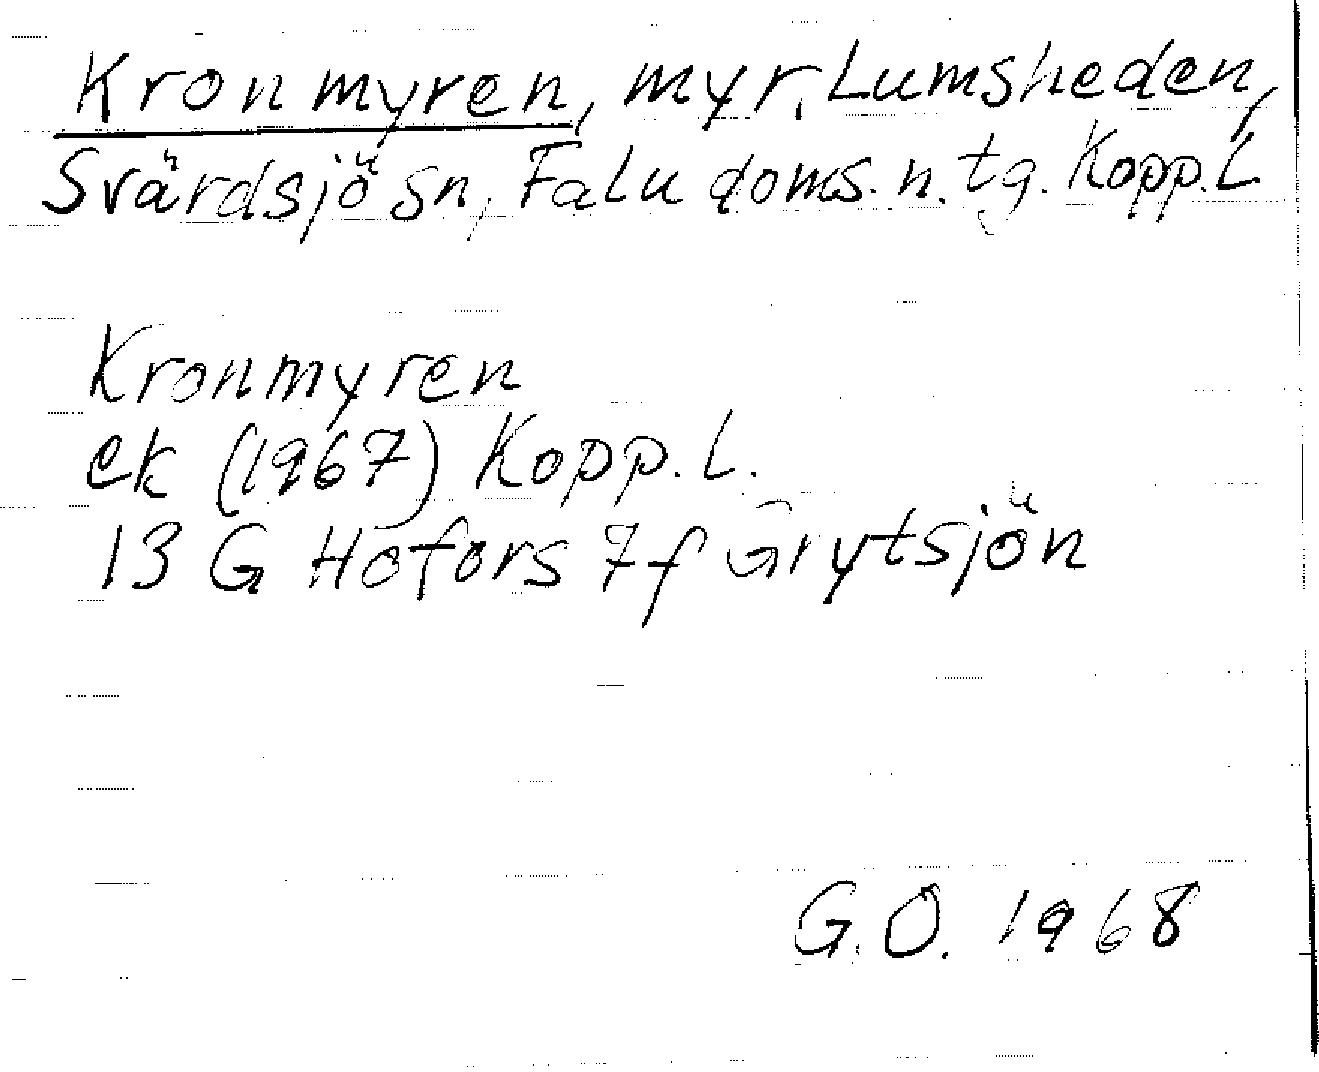 Kronmyren, myr, Lumsheden,
Svärdsjö sn, Falu doms. n. tg. Kopp. L
Kronmyren
ek (1967) Kopp. L.
13 G Hofors 7f Grytsjön
G.O. 1968